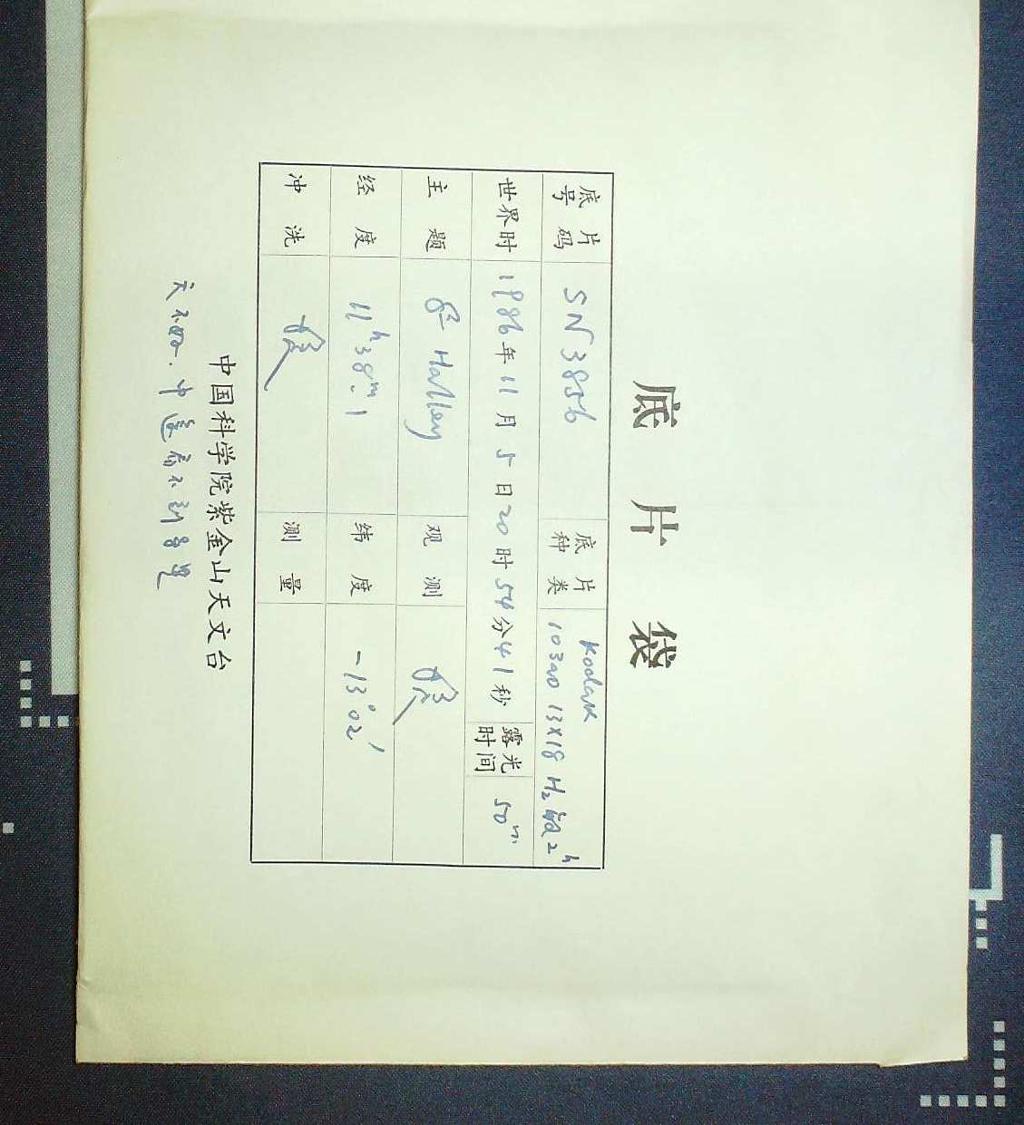 底片袋
底片号码 SN3856 底片种类 Kodak 103aO 13X18 H₂ 敏 2ʰ
世界时 1986年11月5日20时54分41秒 露光时间 50ᵐ
主题 Halley 观测
经度 11ʰ38ᵐ.1 纬度 -13°02′
冲洗 测量
中国科学院紫金山天文台
天不好. 中途看不到彗星